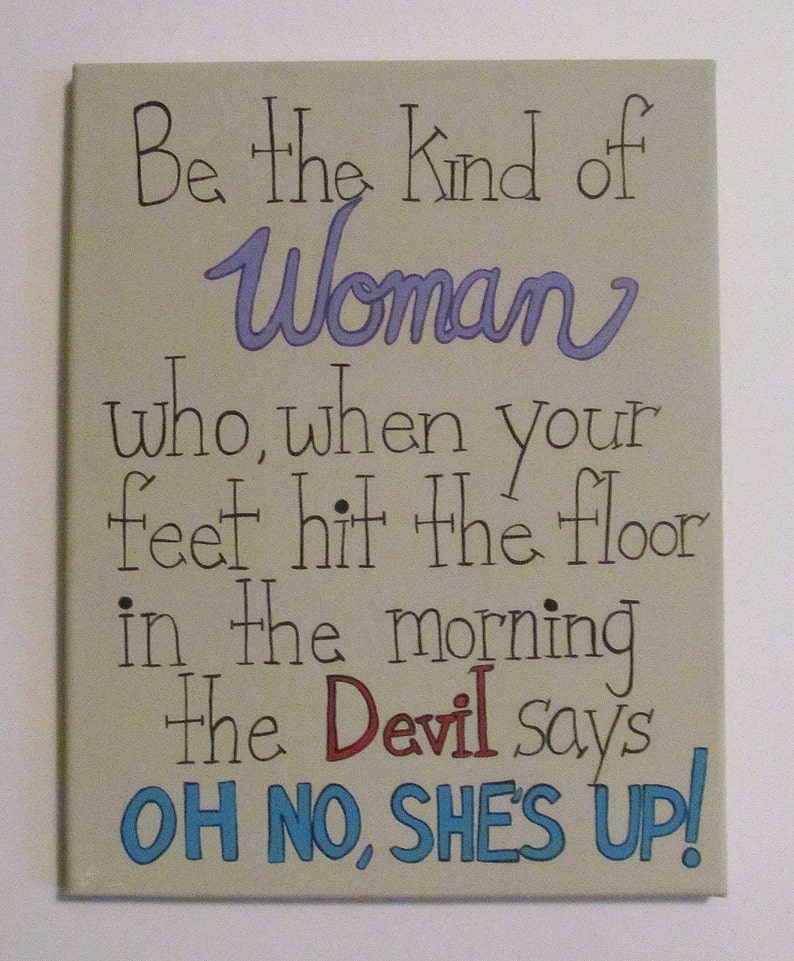 Be the Kind of
Woman
who, when your
feet hit the floor
in the morning
the Devil says
OH NO, SHE'S UP!